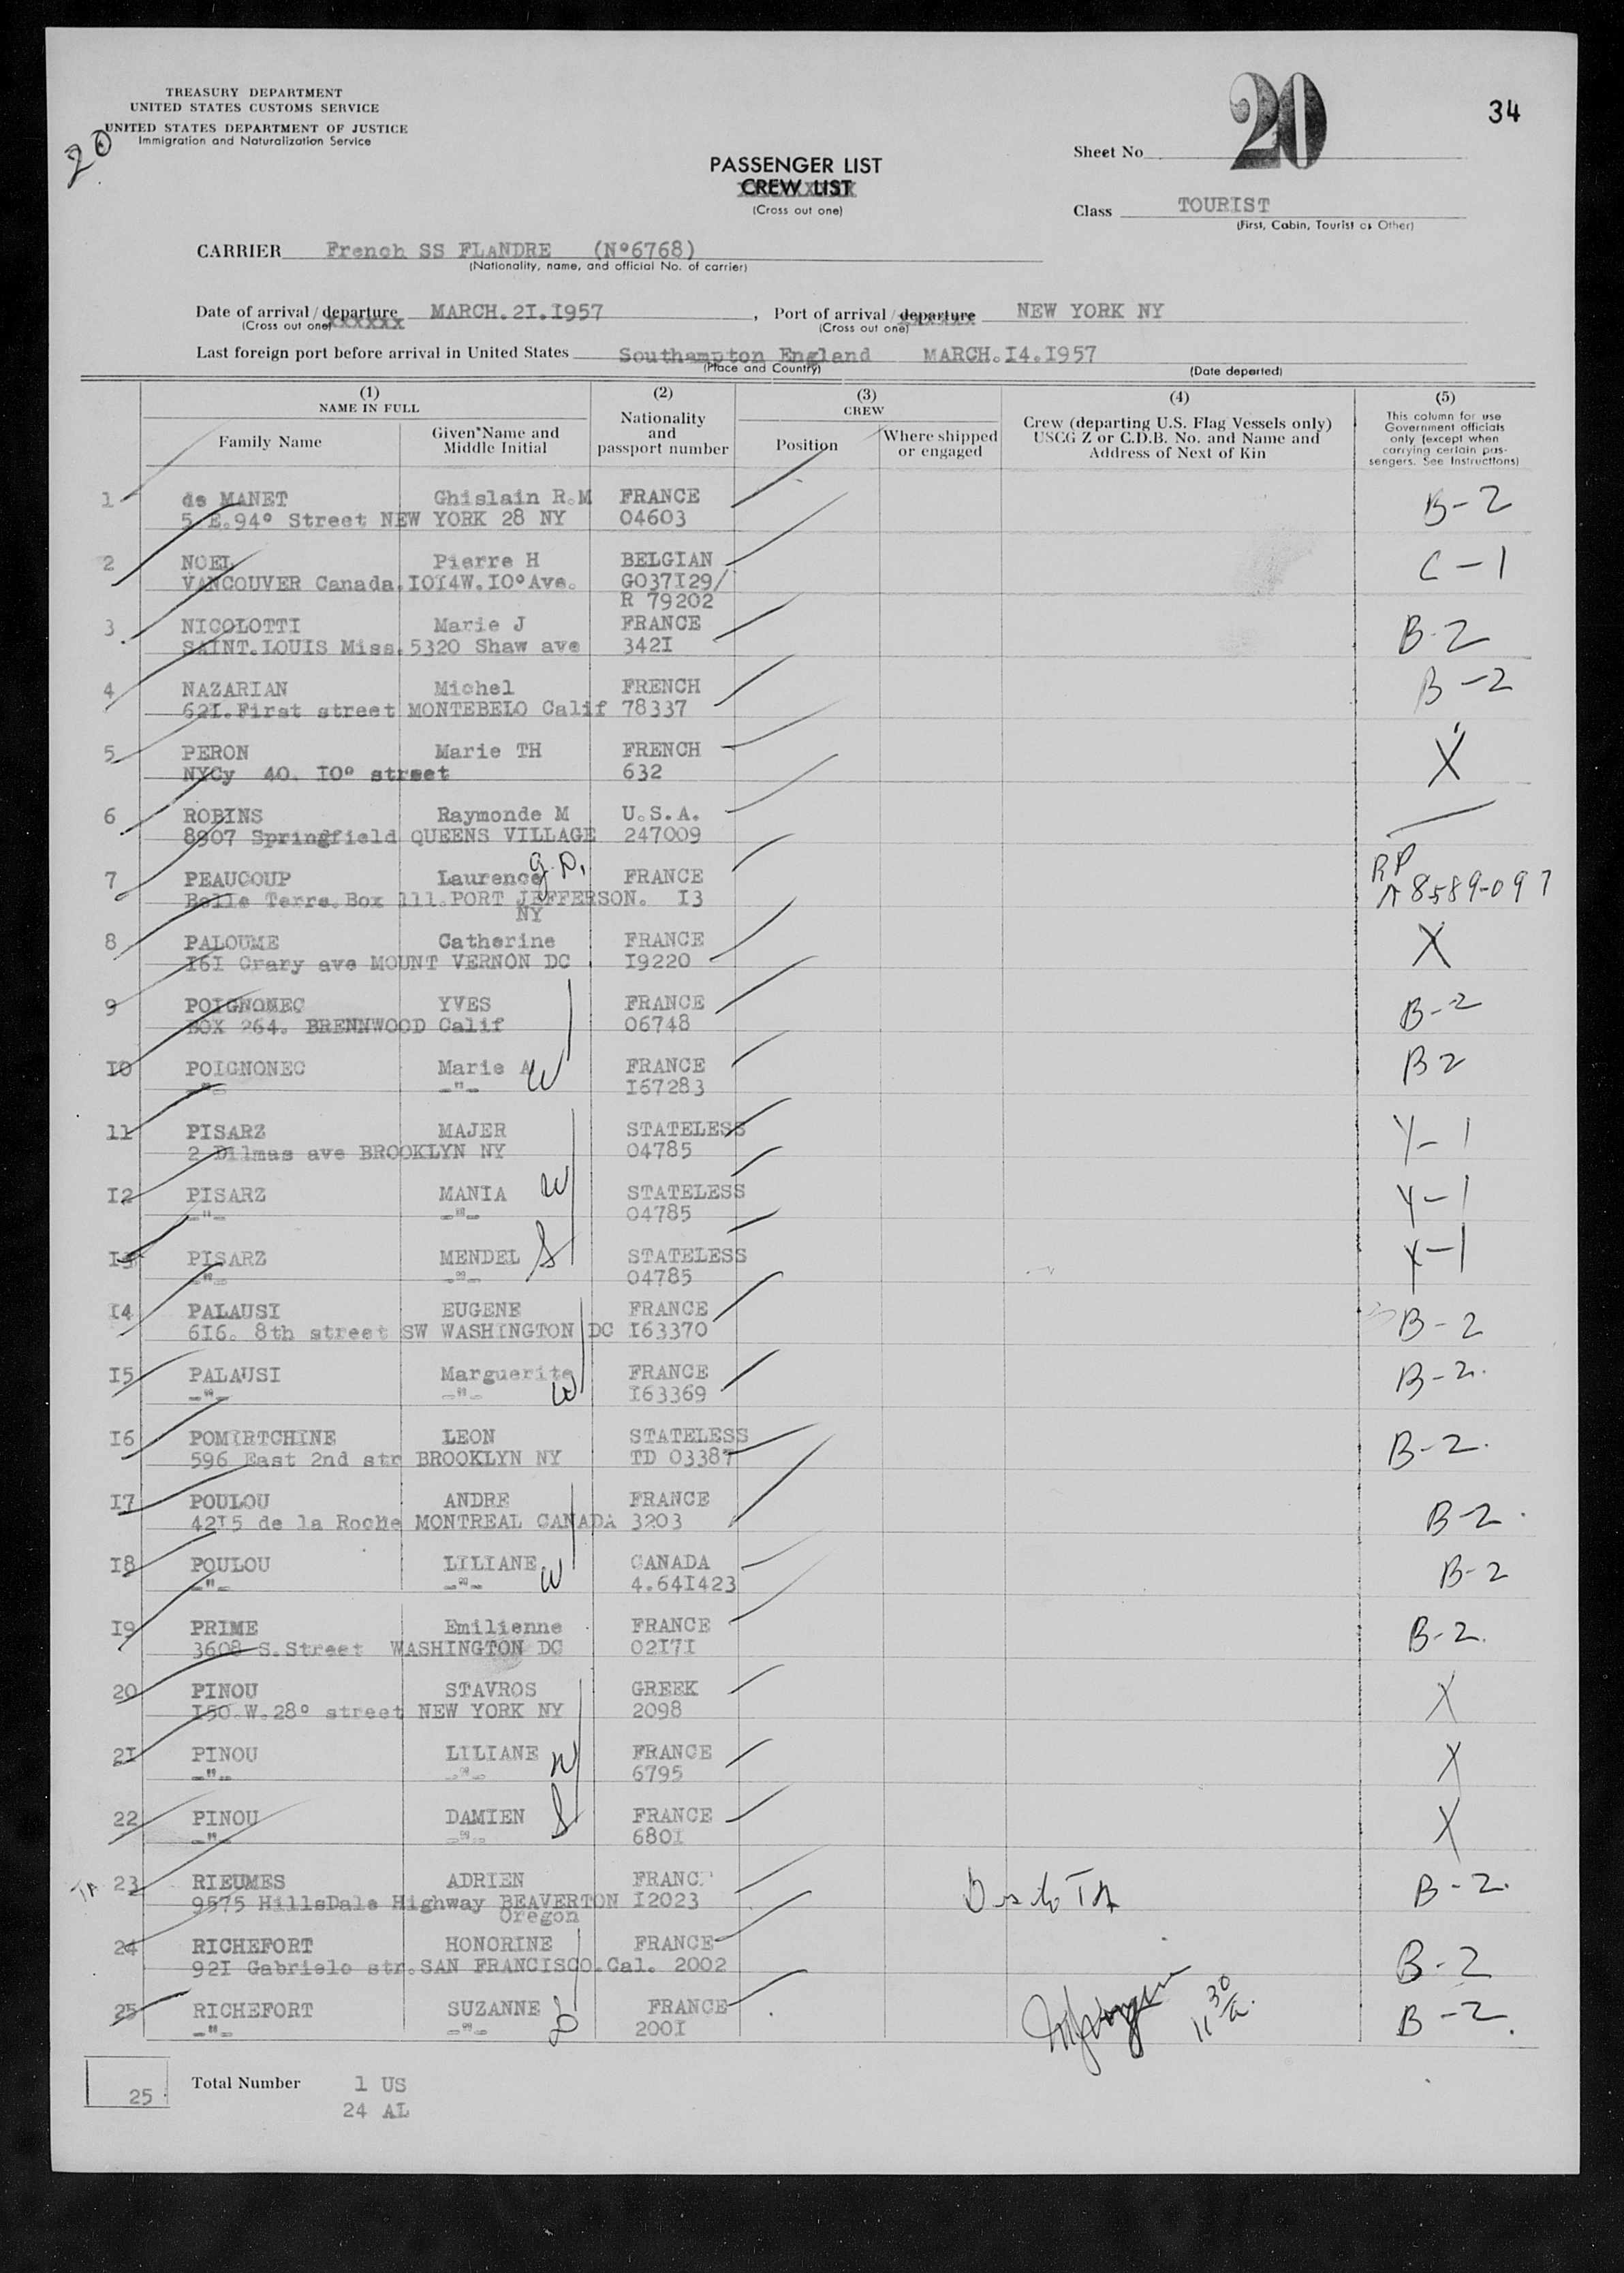 TREASURY DEPARTMENT
UNITED STATES CUSTOMS SERVICE
UNITED STATES DEPARTMENT OF JUSTICE
Immigration and Naturalization Service
20
34
Sheet No 20
PASSENGER LIST
CREW LIST
(Cross out one)
Class TOURIST
(First, Cabin, Tourist or Other)
CARRIER French SS FLANDRE (Nº6768)
(Nationality, name, and official No. of carrier)
Date of arrival / departure MARCH.2I.I957, Port of arrival / departure NEW YORK NY
(Cross out one) xxxxxx (Cross out one)
Last foreign port before arrival in United States Southampton England MARCH.I4.I957
(Place and Country) (Date departed)
(1) (2) (3) (4) (5)
NAME IN FULL Nationality and passport number CREW Crew (departing U.S. Flag Vessels only) USCG Z or C.D.B. No. and Name and Address of Next of Kin This column for use Government officials only (except when carrying certain passengers. See Instructions)
Family Name Given Name and Middle Initial Position Where shipped or engaged
1 de MANET Ghislain R.M FRANCE B-2
5.E.94º Street NEW YORK 28 NY 04603
2 NOEL Pierre H BELGIAN C-1
VANCOUVER Canada.IOI4W.IOºAve. GO37I29/
R 79202
3 NICOLOTTI Marie J FRANCE B-2
SAINT.LOUIS Miss.5320 Shaw ave 342I
4 NAZARIAN Michel FRENCH B-2
62I.First street MONTEBELO Calif 78337
5 PERON Marie TH FRENCH X
NYCy 40. IOº street 632
6 ROBINS Raymonde M U.S.A.
8907 Springfield QUEENS VILLAGE 247009
7 PEAUCOUP Laurence g.D. FRANCE RP
Belle Terre.Box 111.PORT JEFFERSON. I3 A8589-097
NY
8 PALOUME Catherine FRANCE X
I6I Crary ave MOUNT VERNON DC I9220
9 POIGNONEC YVES FRANCE B-2
BOX 264. BRENNWOOD Calif 06748
IO POIGNONEC Marie A W FRANCE B2
-"- -"- I67283
11 PISARZ MAJER STATELESS Y-1
2 Dilmas ave BROOKLYN NY 04785
I2 PISARZ MANIA W STATELESS Y-1
-"- -"- 04785
I3 PISARZ MENDEL S STATELESS Y-1
-"- -"- 04785
I4 PALAUSI EUGENE FRANCE B-2
6I6. 8th street SW WASHINGTON DC I63370
I5 PALAUSI Marguerite W FRANCE B-2.
-"- -"- I63369
I6 POMIRTCHINE LEON STATELESS B-2.
596 East 2nd str BROOKLYN NY TD 03387
I7 POULOU ANDRE FRANCE B-2.
42I5 de la Roche MONTREAL CANADA 3203
I8 POULOU LILIANE W CANADA B-2
-"- -"- 4.64I423
I9 PRIME Emilienne FRANCE B-2.
3608 S.Street WASHINGTON DC 02I7I
20 PINOU STAVROS GREEK X
I50.W.28º street NEW YORK NY 2098
2I PINOU LILIANE W FRANCE X
-"- -"- 6795
22 PINOU DAMIEN S FRANCE X
-"- -"- 680I
TA 23 RIEUMES ADRIEN FRANC B-2.
9575 HillsDale Highway BEAVERTON I2023 TA
Oregon
24 RICHEFORT HONORINE FRANCE B-2
92I Gabriele str.SAN FRANCISCO.Cal. 2002
25 RICHEFORT SUZANNE D FRANCE 11 30/a. B-2.
-"- -"- 200I
25 Total Number 1 US
24 AL